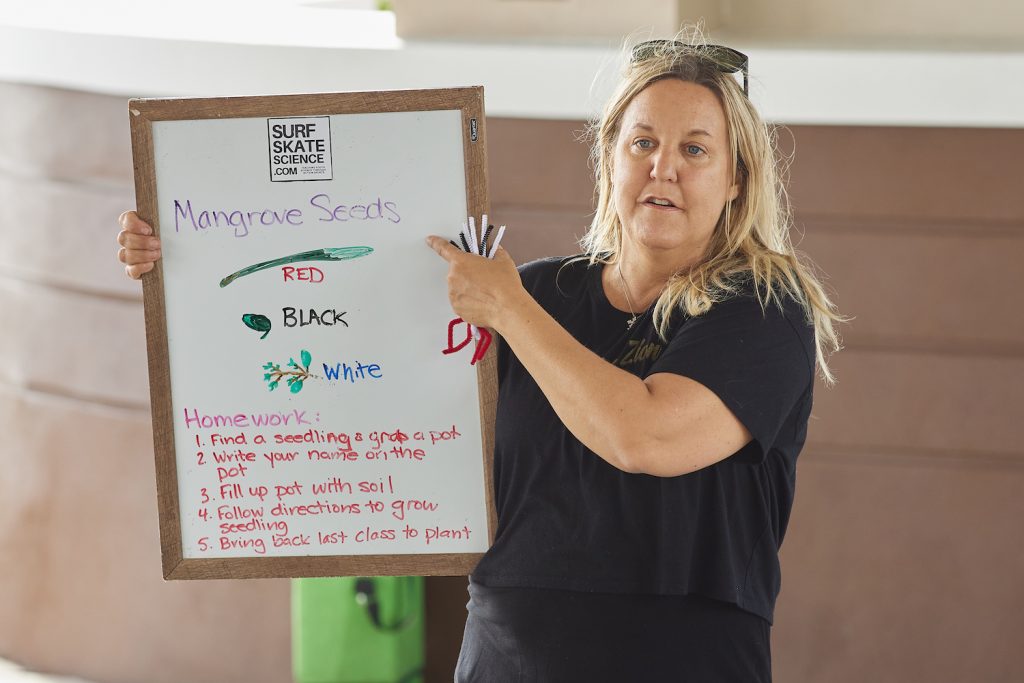 SURF
SKATE
SCIENCE
.COM
Mangrove Seeds
RED
BLACK
White
Homework:
1. Find a seedling & grab a pot
2. Write your name on the
pot
3. Fill up pot with soil
4. Follow directions to grow
seedling
5. Bring back last class to plant